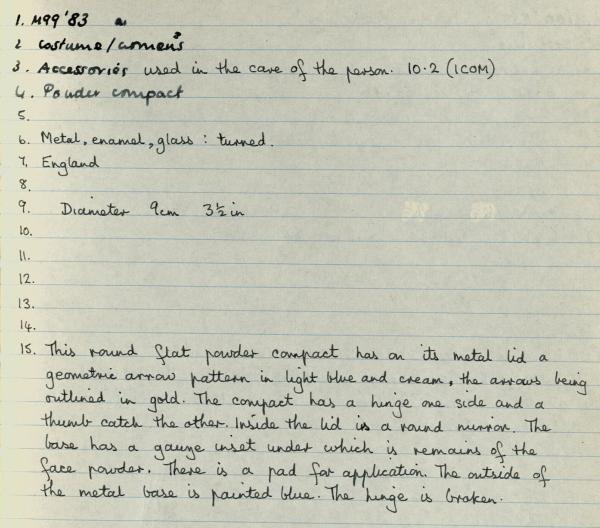 1. M99 '83 a
2 Costume/women's
3. Accessories used in the care of the person. 10.2 (ICOM)
4. Powder compact
5.
6. Metal, enamel, glass : turned.
7. England
8.
9. Diameter 9cm 3½ in
10.
11.
12.
13.
14.
15. This round flat powder compact has on its metal lid a
geometric arrow pattern in light blue and cream, the arrows being
outlined in gold. The compact has a hinge one side and a
thumb catch the other. Inside the lid is a round mirror. The
base has a gauze inset under which is remains of the
face powder. There is a pad for application. The outside of
the metal base is painted blue. The hinge is broken.